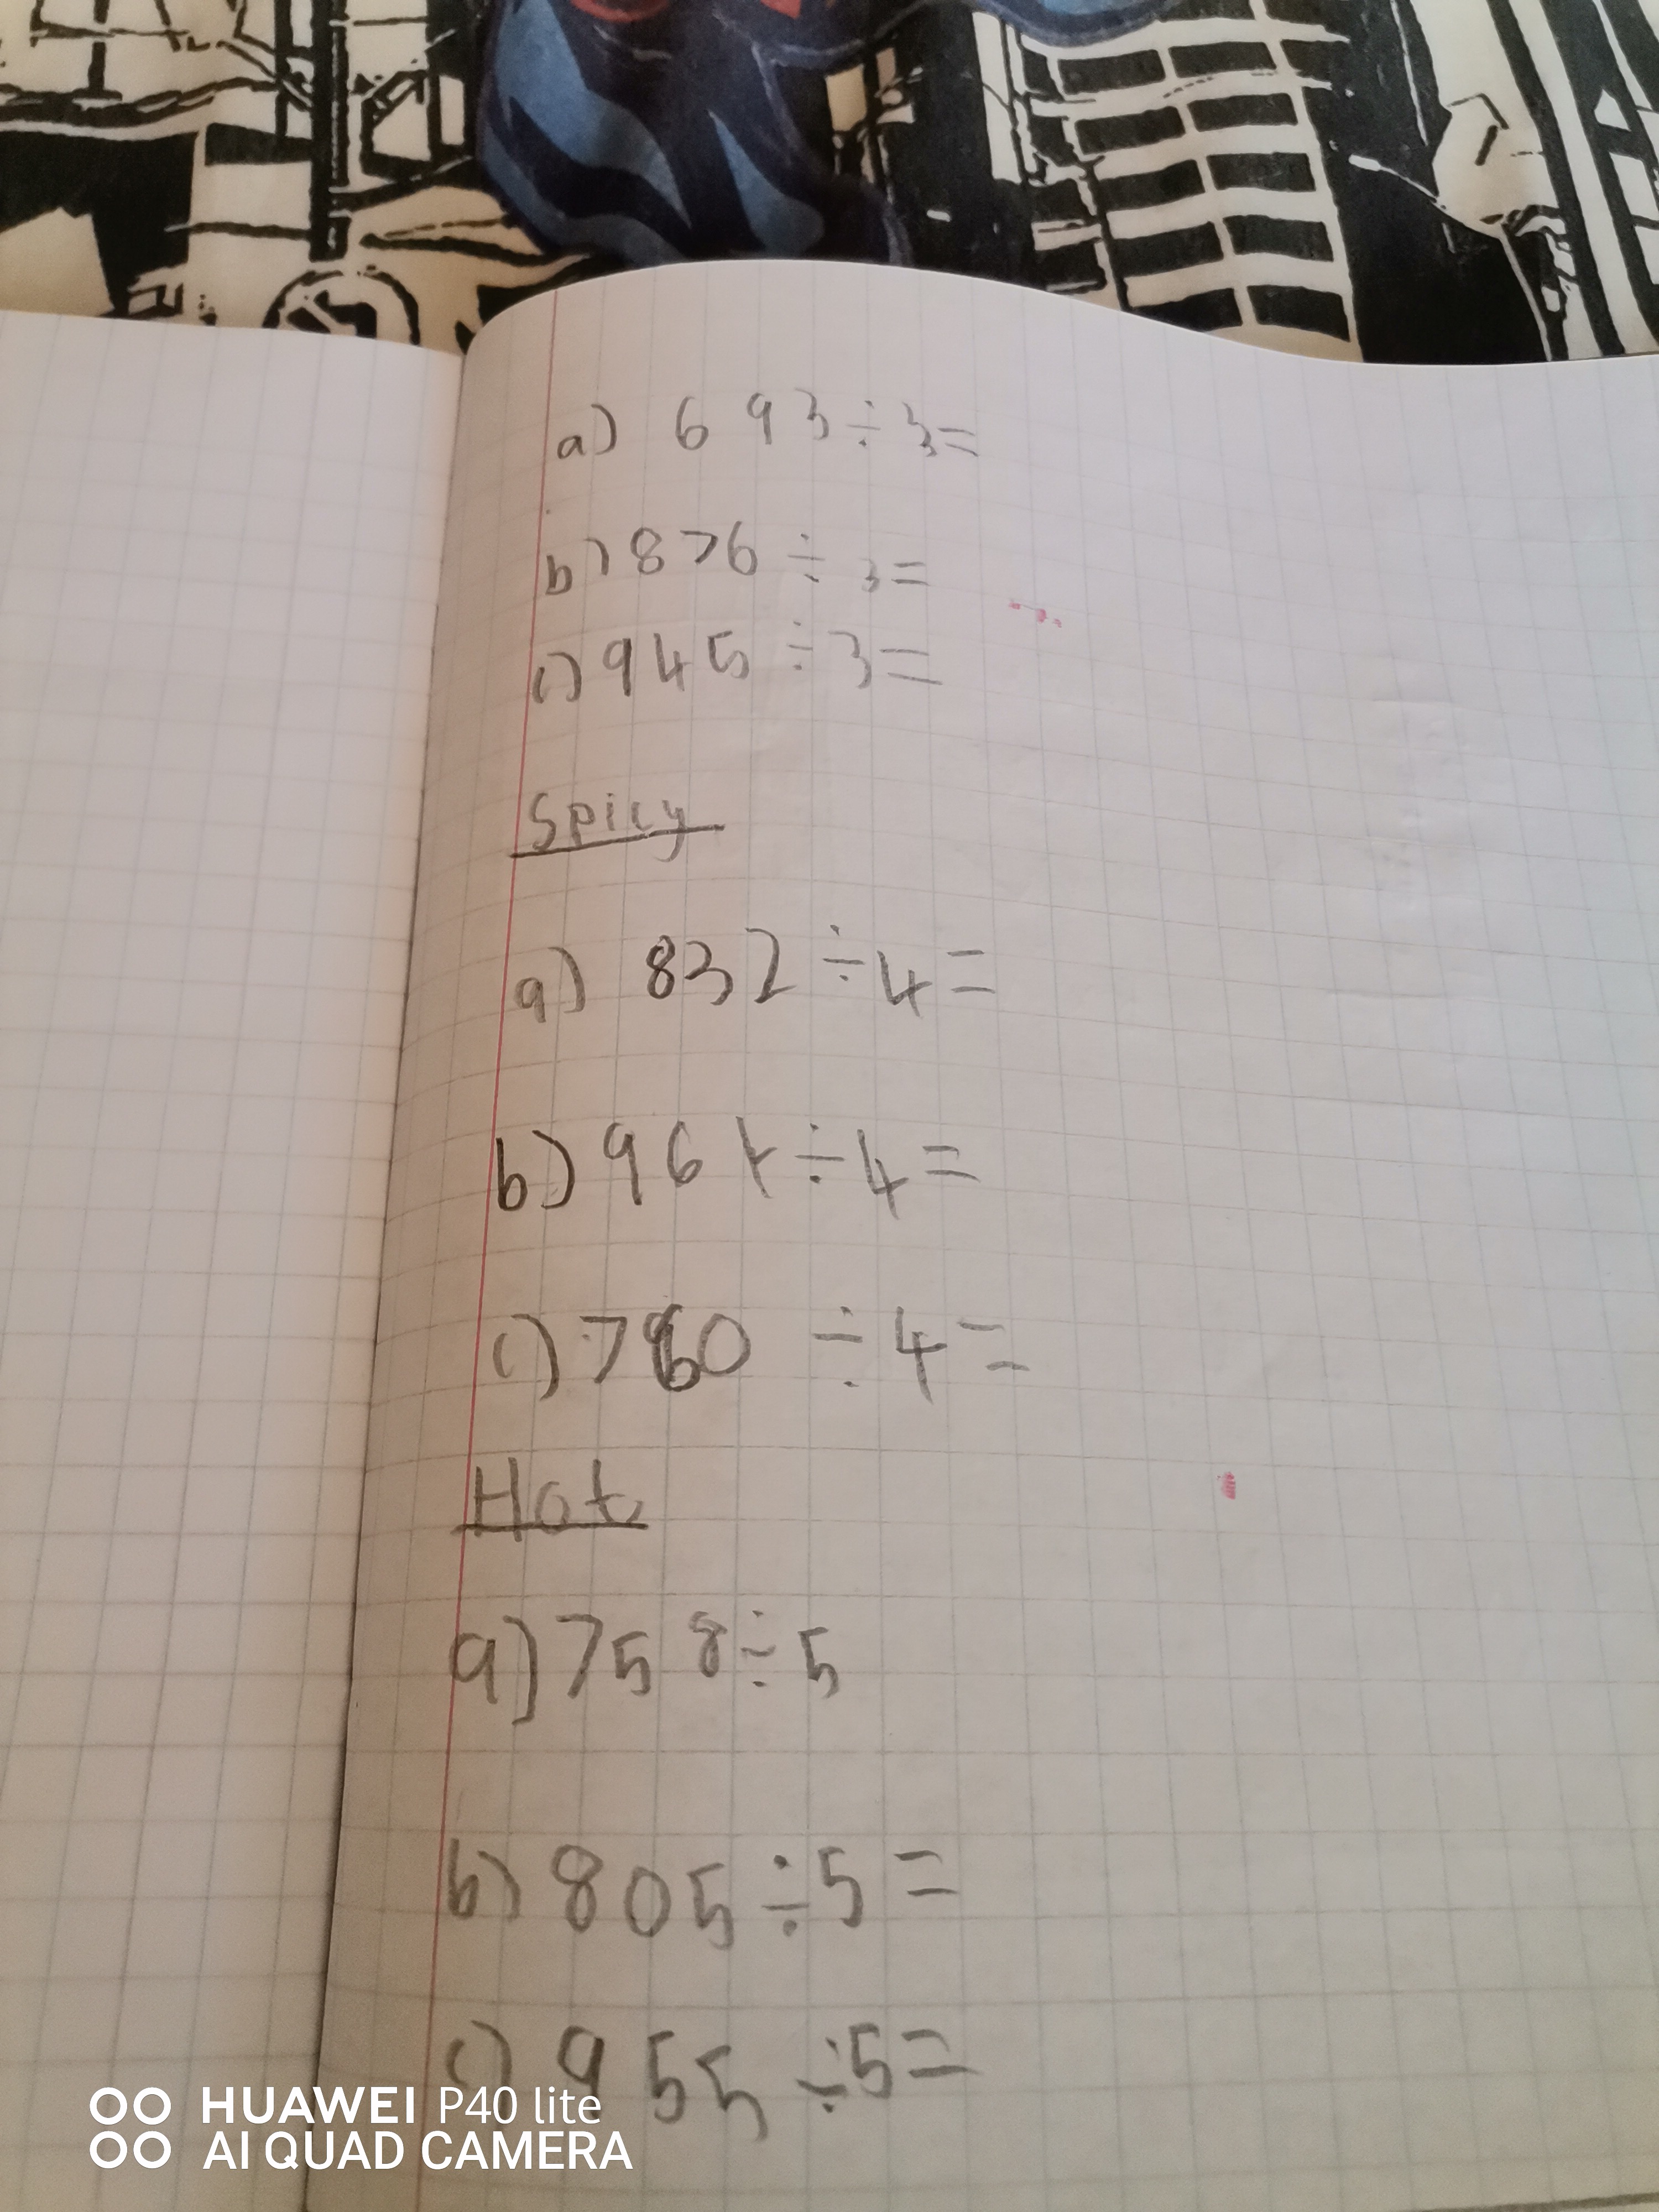 a) 693÷3=
b) 876÷3=
c) 945÷3=
Spicy
a) 832÷4=
b) 964÷4=
c) 760÷4=
Hot
a) 758÷5
b) 805÷5=
c) 955÷5=
HUAWEI P40 lite
AI QUAD CAMERA